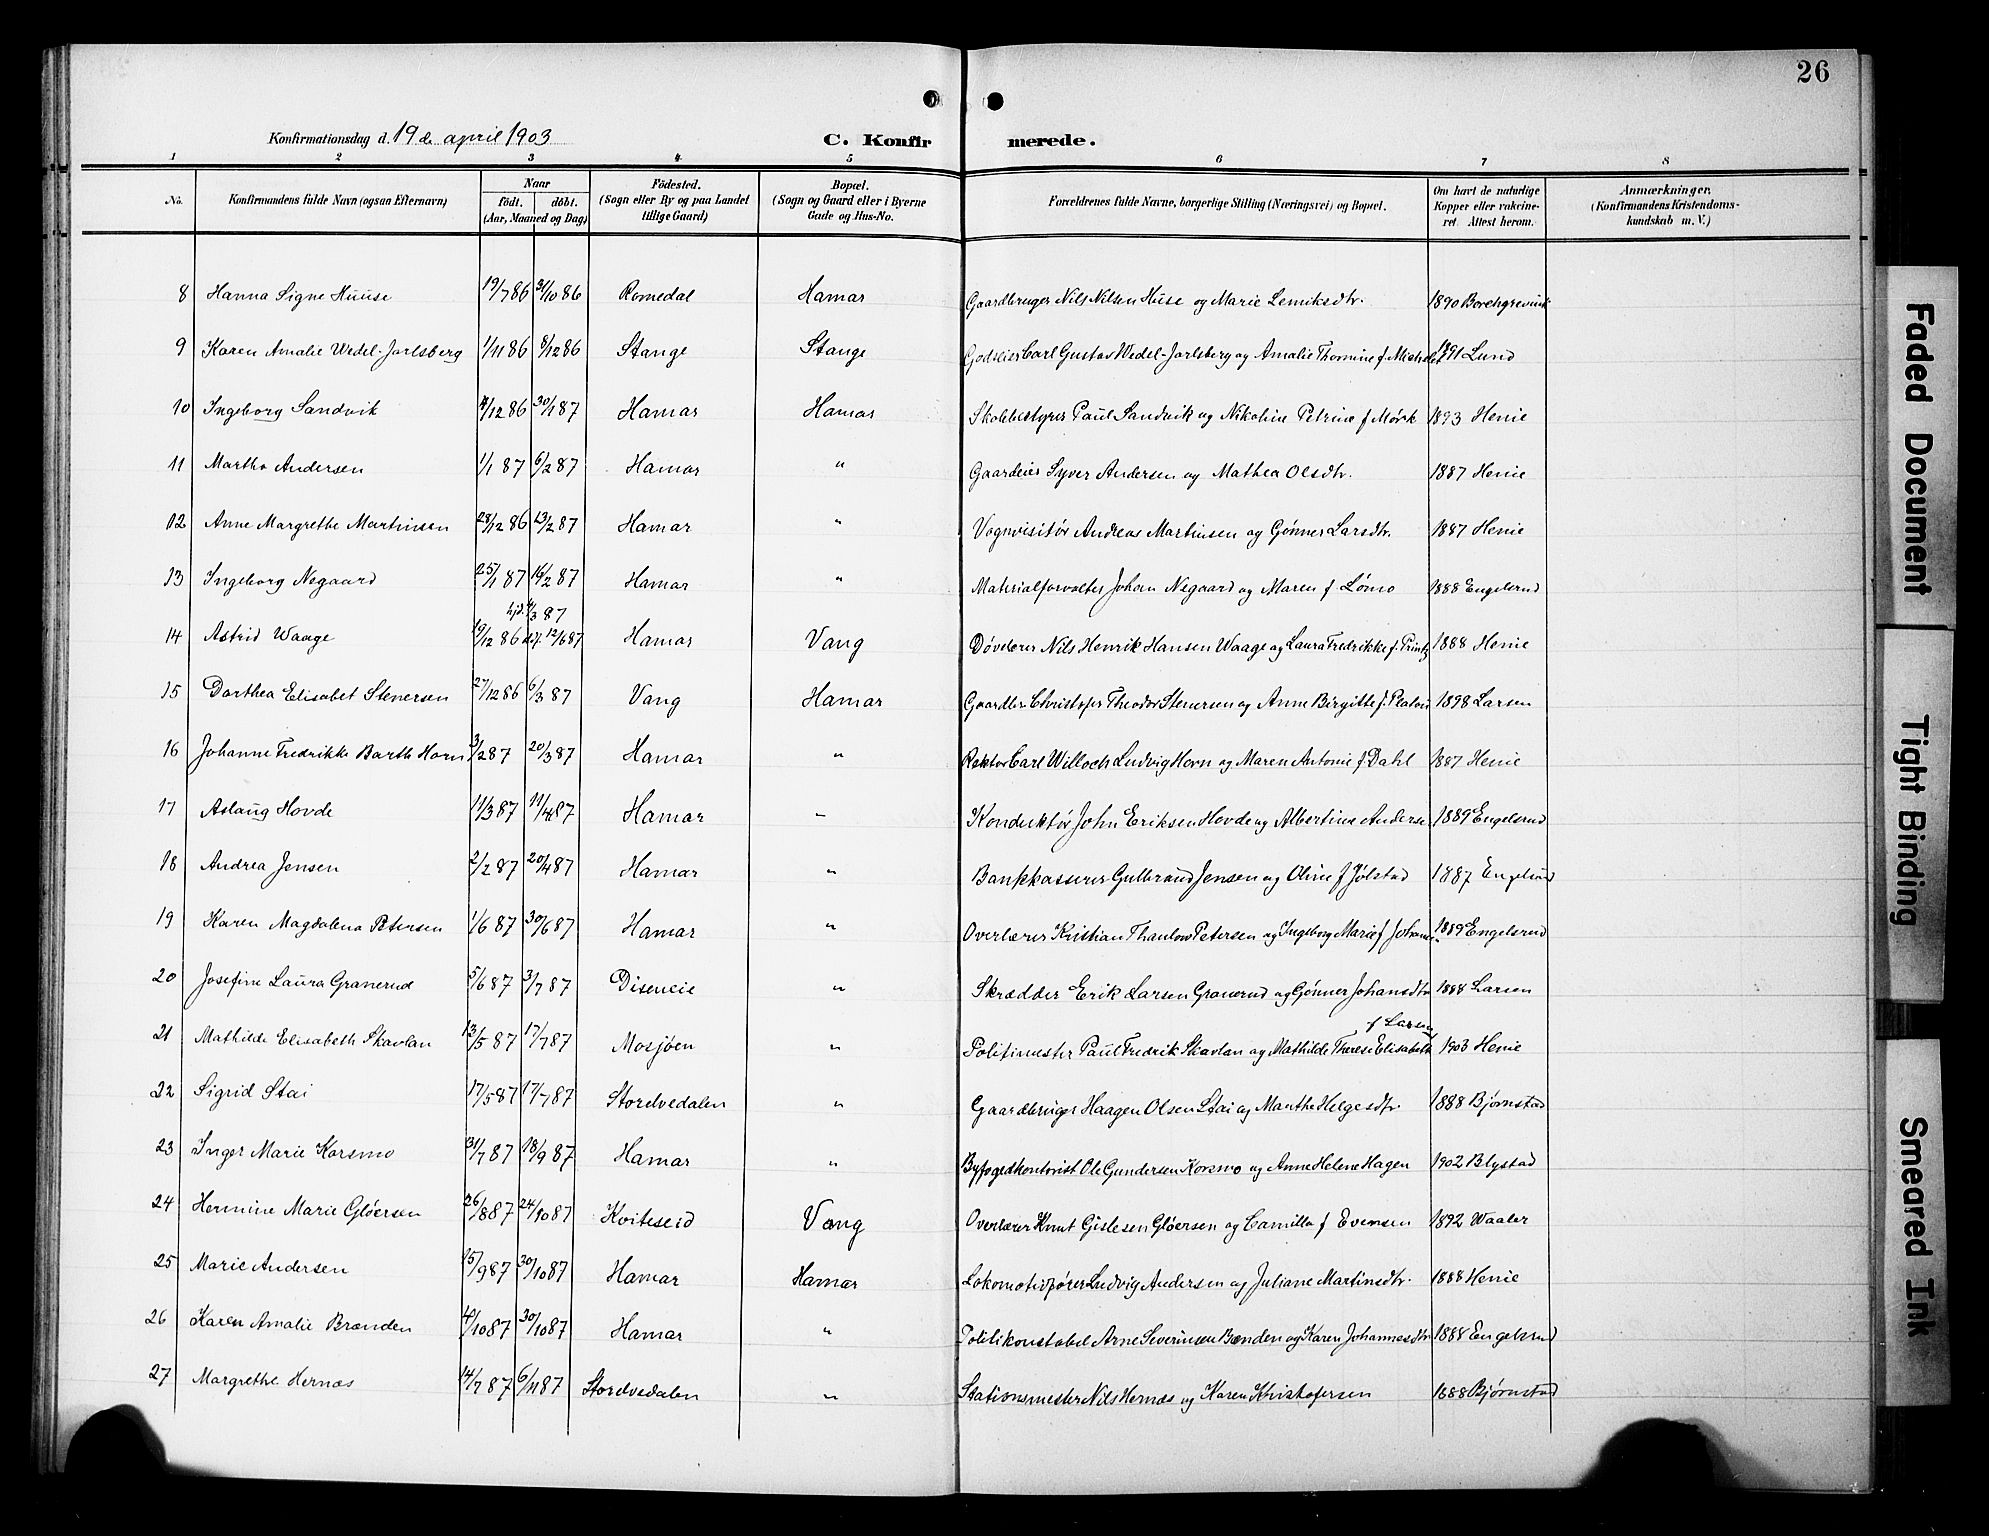 26
Konfirmationsdag d. 19de april 1903 C. Konfirmerede.
1 2 3 4 5 6 7 8
No. Konfirmandens fulde Navn (ogsaa Efternavn) Naar födt. döbt. (Aar, Maaned og Dag) Födested. (Sogn eller By og paa Landet tillige Gaard) Bopæl. (Sogn og Gaard eller i Byerne Gade og Hus-No. Forældrenes fulde Navne, borgerlige Stilling (Næringsvei) og Bopæl. Om havt de naturlige Kopper eller vakcineret. Attest herom. Anmærkninger. (Konfirmandens Kristendomskundskab m. V.)
8 Hanna Signe Huuse 19/7 86 31/10 86 Romedal Hamar Gaardbruger Nils Nilsen Huse og Marie Lemiksdtr. 1890 Borchgrevink
9 Karen Amalie Wedel-Jarlsberg 1/11 86 8/12 86 Stange Stange Godseier Carl Gustav Wedel-Jarlsberg og Amalie Thomine f. Michelet 1891 Lund
10 Ingeborg Sandvik 4/12 86 30/1 87 Hamar Hamar Skolebestyrer Paul Sandvik og Nikoline Petrine f Mørk 1893 Henie
11 Martha Andersen 1/1 87 6/2 87 Hamar " Gaardeier Syver Andersen og Mathea Olsdtr. 1887 Henie
12 Anne Margrethe Martinsen 28/12 86 13/2 87 Hamar " Vognvisitør Andreas Martinsen og Gønner Larsdtr. 1887 Henie
13 Ingeborg Nøgaard 25/1 87 16/2 87 Hamar " Materialforvalter Johan Nøgaard og Maren f. Lømo 1888 Engelsrud
hjd. 4/3 87
14 Astrid Waage 19/12 86 12/6 87 Hamar Vang Døvelærer Nils Henrik Hansen Waage og Laura Fredrikke f. Printz 1888 Henie
15 Dorthea Elisabet Stenersen 27/12 86 6/3 87 Vang Hamar Gaardbr. Christofer Theodor Stenersen og Anne Birgitte f. Platou 1898 Larsen
16 Johanne Fredrikke Barth Horn 3/2 87 20/3 87 Hamar " Rektor Carl Willoch Ludvig Horn og Maren Antonie f Dahl 1887 Henie
17 Aslaug Hovde 11/3 87 11/4 87 Hamar " Konduktør John Eriksen Hovde og Albertine Anderse 1889 Engelsrud
18 Andrea Jensen 2/2 87 20/4 87 Hamar " Bankkasserer Gulbrand Jensen og Oline f Jølstad 1887 Engelsrud
19 Karen Magdalena Petersen 1/6 87 30/6 87 Hamar " Overlærer Kristian Thaulow Petersen og Ingeborg Marie f Johansen 1889 Engelsrud
20 Josefine Laura Granerud 5/6 87 3/7 87 Diseneie " Skrædder Erik Larsen Granerud og Gønner Johansdtr 1888 Larsen
f Larsen
21 Mathilde Elisabeth Skavlan 13/5 87 17/7 87 Mosjøen " Politimester Paul Fredrik Skavlan og Mathilde Therese Elisabeth 1903 Henie
22 Sigrid Stai 17/5 87 17/7 87 Storelvedalen " Gaardbruger Haagen Olsen Stai og Marthe Helgesdtr. 1888 Bjørnstad
23 Inger Marie Korsmo 31/7 87 18/9 87 Hamar " Byfogedkontorist Ole Gundersen Korsmo og Anne Helene Hagen 1902 Blystad
24 Hermine Marie Gløersen 26/8 87 24/10 87 Kviteseid Vang Overlærer Knut Gislesen Gløersen og Camilla f Evensen 1892 Waaler
25 Marie Andersen 15/9 87 30/10 87 Hamar Hamar Lokomotivfører Ludvig Andersen og Juliane Martinsdtr. 1888 Henie
26 Karen Amalie Brænden 4/10 87 30/10 87 Hamar " Politikonstabel Arne Severinsen Brænden og Karen Johannesdtr 1888 Engelsrud
27 Margrethe Hernæs 14/7 87 6/11 87 Storelvedalen " Stationsmester Nils Hernæs og Karen Kristofersen 1888 Bjørnstad
Faded Document
Tight Binding
Smeared Ink